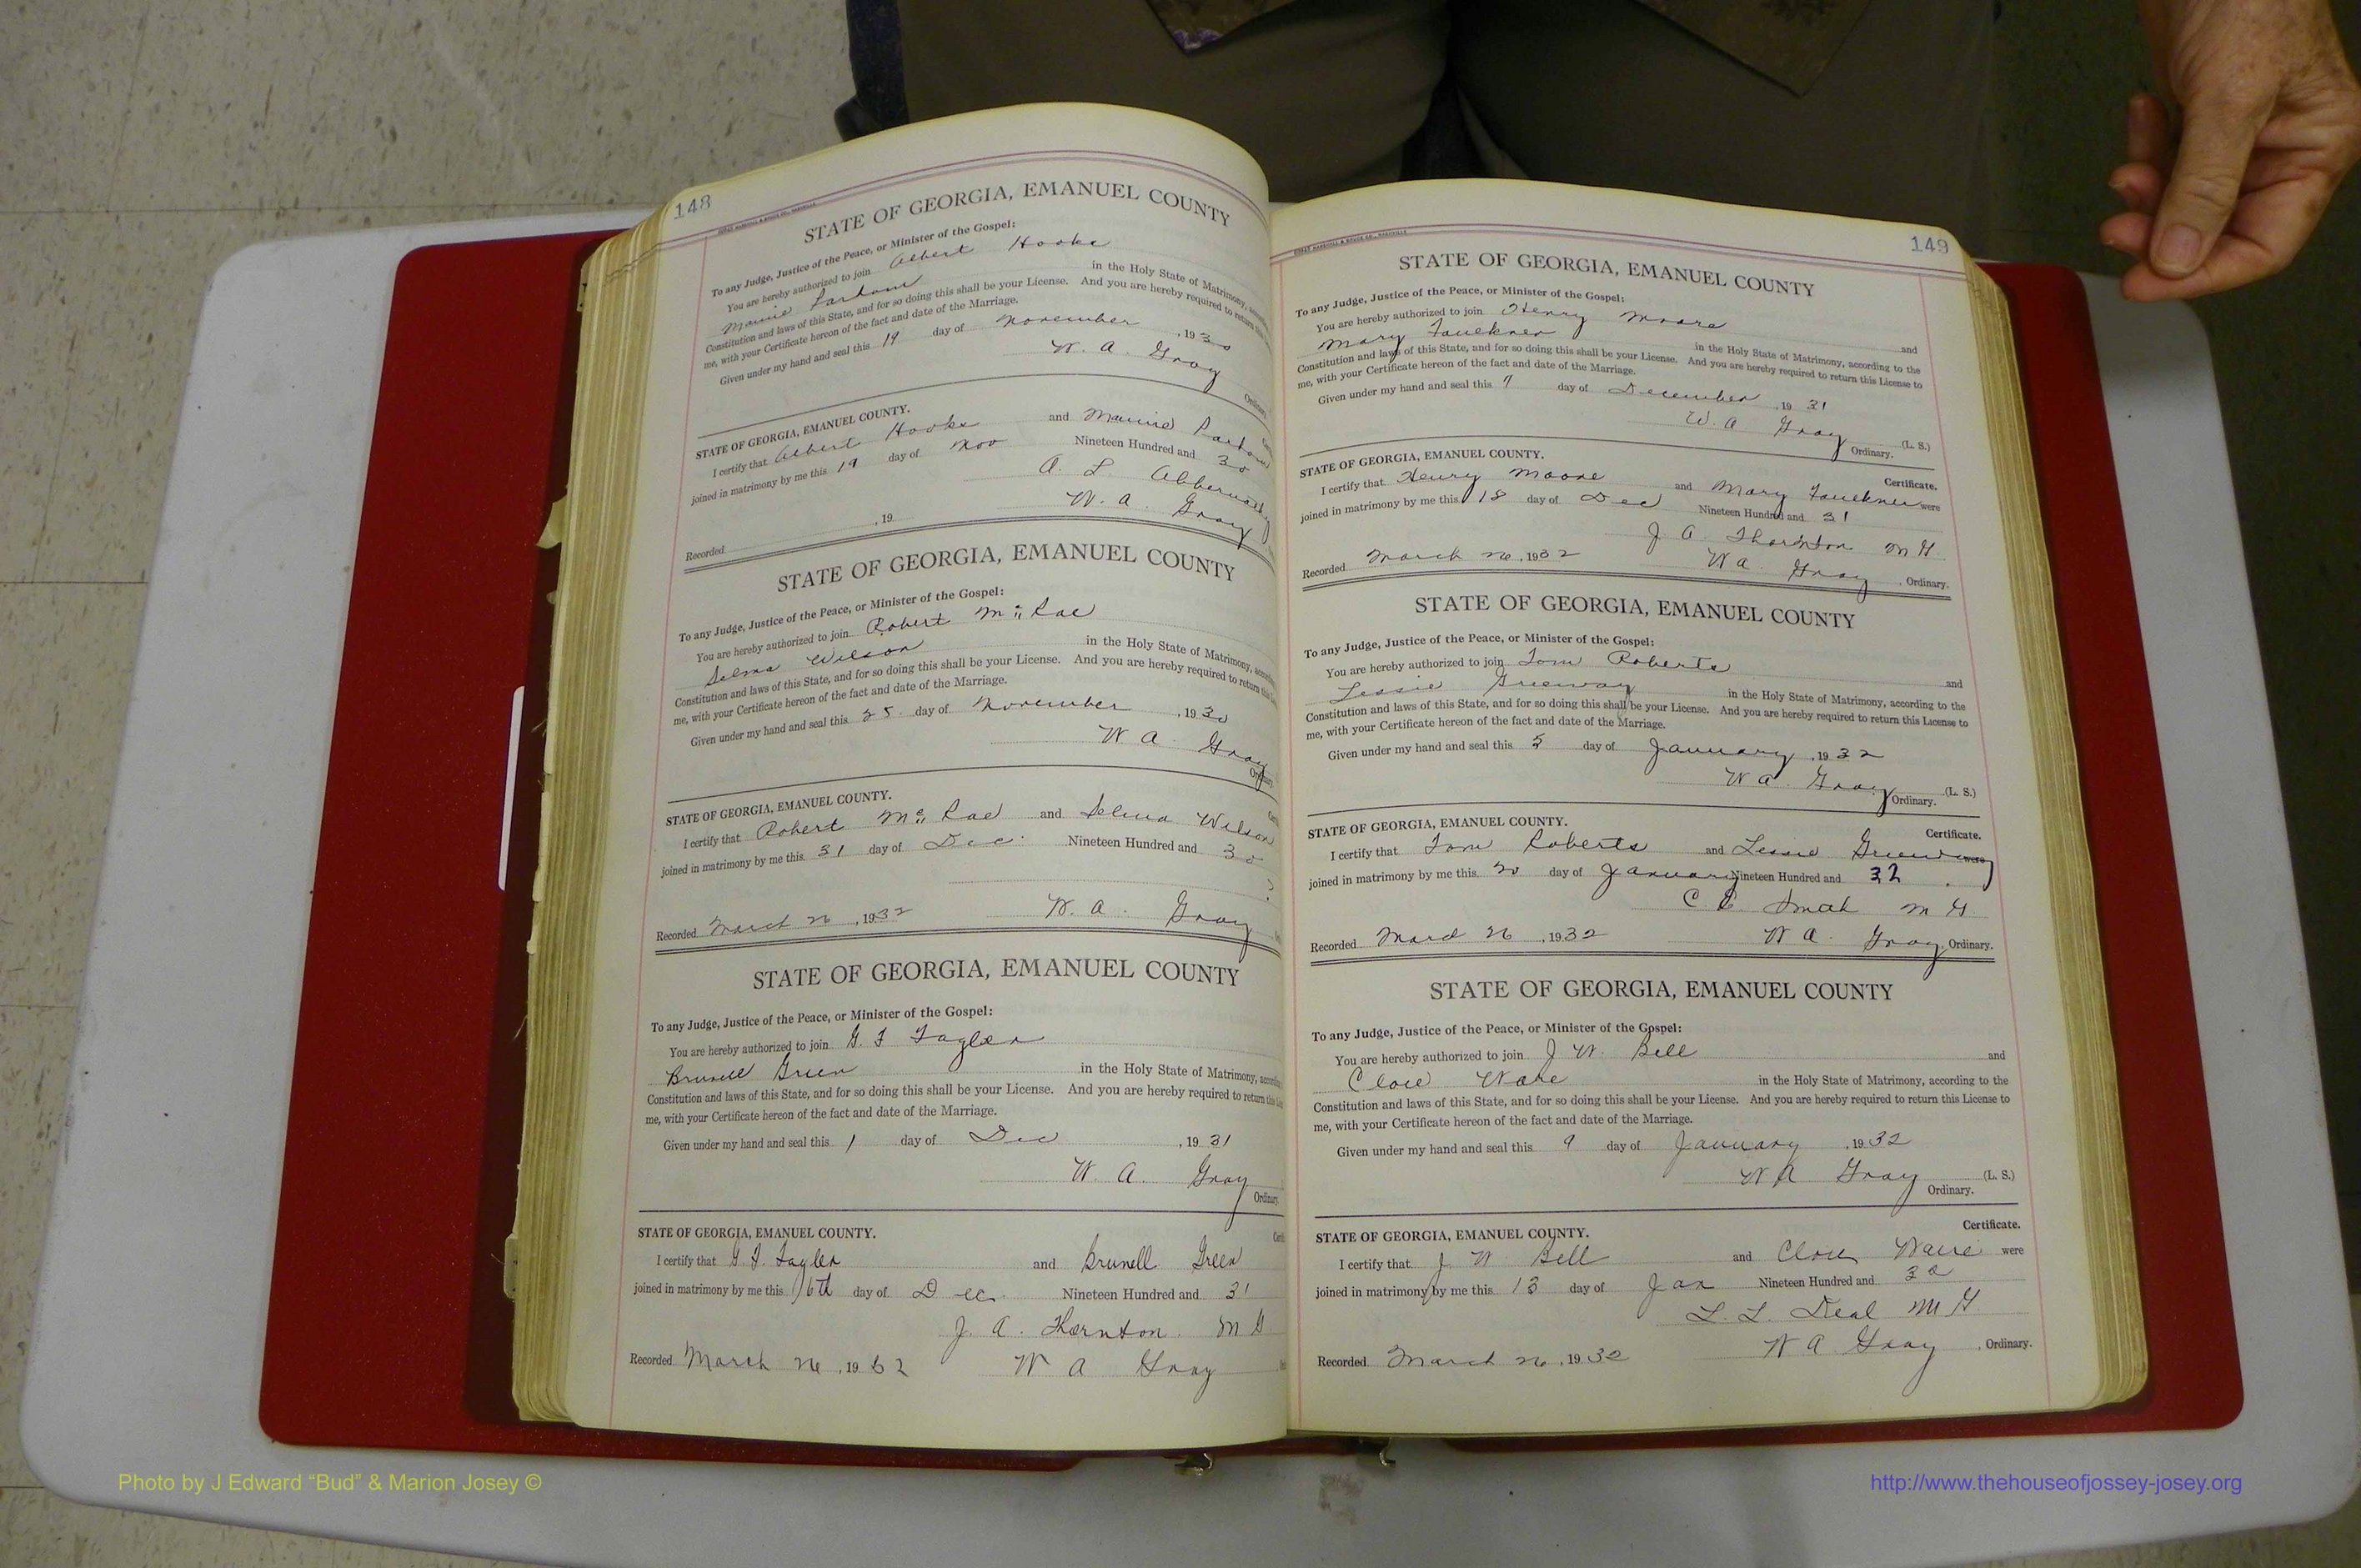 148
STATE OF GEORGIA, EMANUEL COUNTY
To any Judge, Justice of the Peace, or Minister of the Gospel:
You are hereby authorized to join Albert Hooks
Mamie in the Holy State of Matrimony,
Constitution and laws of this State, and for so doing this shall be your License. And you are hereby required to return this
me, with your Certificate hereon of the fact and date of the Marriage.
Given under my hand and seal this 19 day of November , 1930
W. A. Gray
Ordinary.
STATE OF GEORGIA, EMANUEL COUNTY.
I certify that Albert Hooks and Mamie
joined in matrimony by me this 19 day of Nov Nineteen Hundred and 30
A. L. Abbernathy
W. A. Gray
Recorded , 19
STATE OF GEORGIA, EMANUEL COUNTY
To any Judge, Justice of the Peace, or Minister of the Gospel:
You are hereby authorized to join Robert Mc Rae
Selma Wilson in the Holy State of Matrimony,
Constitution and laws of this State, and for so doing this shall be your License. And you are hereby required to return this
me, with your Certificate hereon of the fact and date of the Marriage.
Given under my hand and seal this 25 day of November , 1930
W A Gray
Ordinary
STATE OF GEORGIA, EMANUEL COUNTY.
I certify that Robert Mc Rae and Selma Wilson
joined in matrimony by me this 31 day of Dec. Nineteen Hundred and 30
Recorded March 26 , 1932 W. A. Gray
STATE OF GEORGIA, EMANUEL COUNTY
To any Judge, Justice of the Peace, or Minister of the Gospel:
You are hereby authorized to join G. F Fagler
Brunell Green in the Holy State of Matrimony,
Constitution and laws of this State, and for so doing this shall be your License. And you are hereby required to return this
me, with your Certificate hereon of the fact and date of the Marriage.
Given under my hand and seal this 1 day of Dec , 1931
W. A. Gray
Ordinary.
STATE OF GEORGIA, EMANUEL COUNTY.
I certify that G. F. Fagler and Brunell Green
joined in matrimony by me this 16th day of Dec. Nineteen Hundred and 31
J. A. Thornton. M G
Recorded March 26 , 1932 W A Gray
149
STATE OF GEORGIA, EMANUEL COUNTY
To any Judge, Justice of the Peace, or Minister of the Gospel:
You are hereby authorized to join Henry Moore and
Mary Faulkner in the Holy State of Matrimony, according to the
Constitution and laws of this State, and for so doing this shall be your License. And you are hereby required to return this License to
me, with your Certificate hereon of the fact and date of the Marriage.
Given under my hand and seal this 7 day of December , 19 31
W. A Gray (L. S.)
Ordinary.
STATE OF GEORGIA, EMANUEL COUNTY. Certificate.
I certify that Henry Moore and Mary Faulkner were
joined in matrimony by me this 18 day of Dec Nineteen Hundred and 31
J A Thornton M G.
Recorded March 26, 1932 W A. Gray , Ordinary.
STATE OF GEORGIA, EMANUEL COUNTY
To any Judge, Justice of the Peace, or Minister of the Gospel:
You are hereby authorized to join Tom Roberts and
Lessie Greenway in the Holy State of Matrimony, according to the
Constitution and laws of this State, and for so doing this shall be your License. And you are hereby required to return this License to
me, with your Certificate hereon of the fact and date of the Marriage.
Given under my hand and seal this 5 day of January , 1932
W A. Gray (L. S.)
Ordinary.
STATE OF GEORGIA, EMANUEL COUNTY. Certificate.
I certify that Tom Roberts and Lessie Greenway were
joined in matrimony by me this 20 day of January Nineteen Hundred and 32
C. C. Smith M G
Recorded March 26 , 1932 W A. Gray, Ordinary.
STATE OF GEORGIA, EMANUEL COUNTY
To any Judge, Justice of the Peace, or Minister of the Gospel:
You are hereby authorized to join J W. Bell and
Cloie Ware in the Holy State of Matrimony, according to the
Constitution and laws of this State, and for so doing this shall be your License. And you are hereby required to return this License to
me, with your Certificate hereon of the fact and date of the Marriage.
Given under my hand and seal this 9 day of January , 1932
W A Gray (L. S.)
Ordinary.
STATE OF GEORGIA, EMANUEL COUNTY. Certificate.
I certify that J. W Bell and Cloie were
joined in matrimony by me this 13 day of Jan Nineteen Hundred and 32
L. L. Deal M G
Recorded March 26, 1932 W A Gray , Ordinary.
Photo by J Edward “Bud” & Marion Josey ©
http://www.thehouseofjossey-josey.org